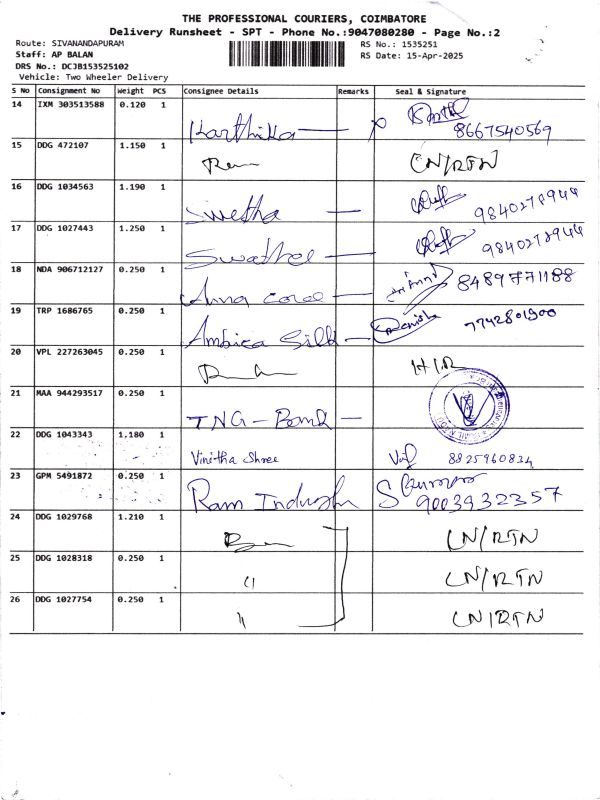 THE PROFESSIONAL COURIERS, COIMBATORE
Delivery Runsheet - SPT - Phone No.:9047080280 - Page No.:2
Route: SIVANANDAPURAM RS No.: 1535251
Staff: AP BALAN RS Date: 15-Apr-2025
DRS No.: DCJB153525102
Vehicle: Two Wheeler Delivery
S No Consignment No Weight PCS Consignee Details Remarks Seal & Signature
14 IXM 303513588 0.120 1 Karthika 8667540569
15 DDG 472107 1.150 1 CN/RTN
16 DDG 1034563 1.190 1 Swetha 9840278944
17 DDG 1027443 1.250 1 9840278944
18 NDA 906712127 0.250 1 Anna 8489771188
19 TRP 1686765 0.250 1 Ambica Silk 7742801900
20 VPL 227263045 0.250 1
21 MAA 944293517 0.250 1 TNG - Bond
22 DDG 1043343 1.180 1 Vinitha Shree 8825960834
23 GPM 5491872 0.250 1 Ram 9003932357
24 DDG 1029768 1.210 1 CN/RTN
25 DDG 1028318 0.250 1 " CN/RTN
26 DDG 1027754 0.250 1 " CN/RTN